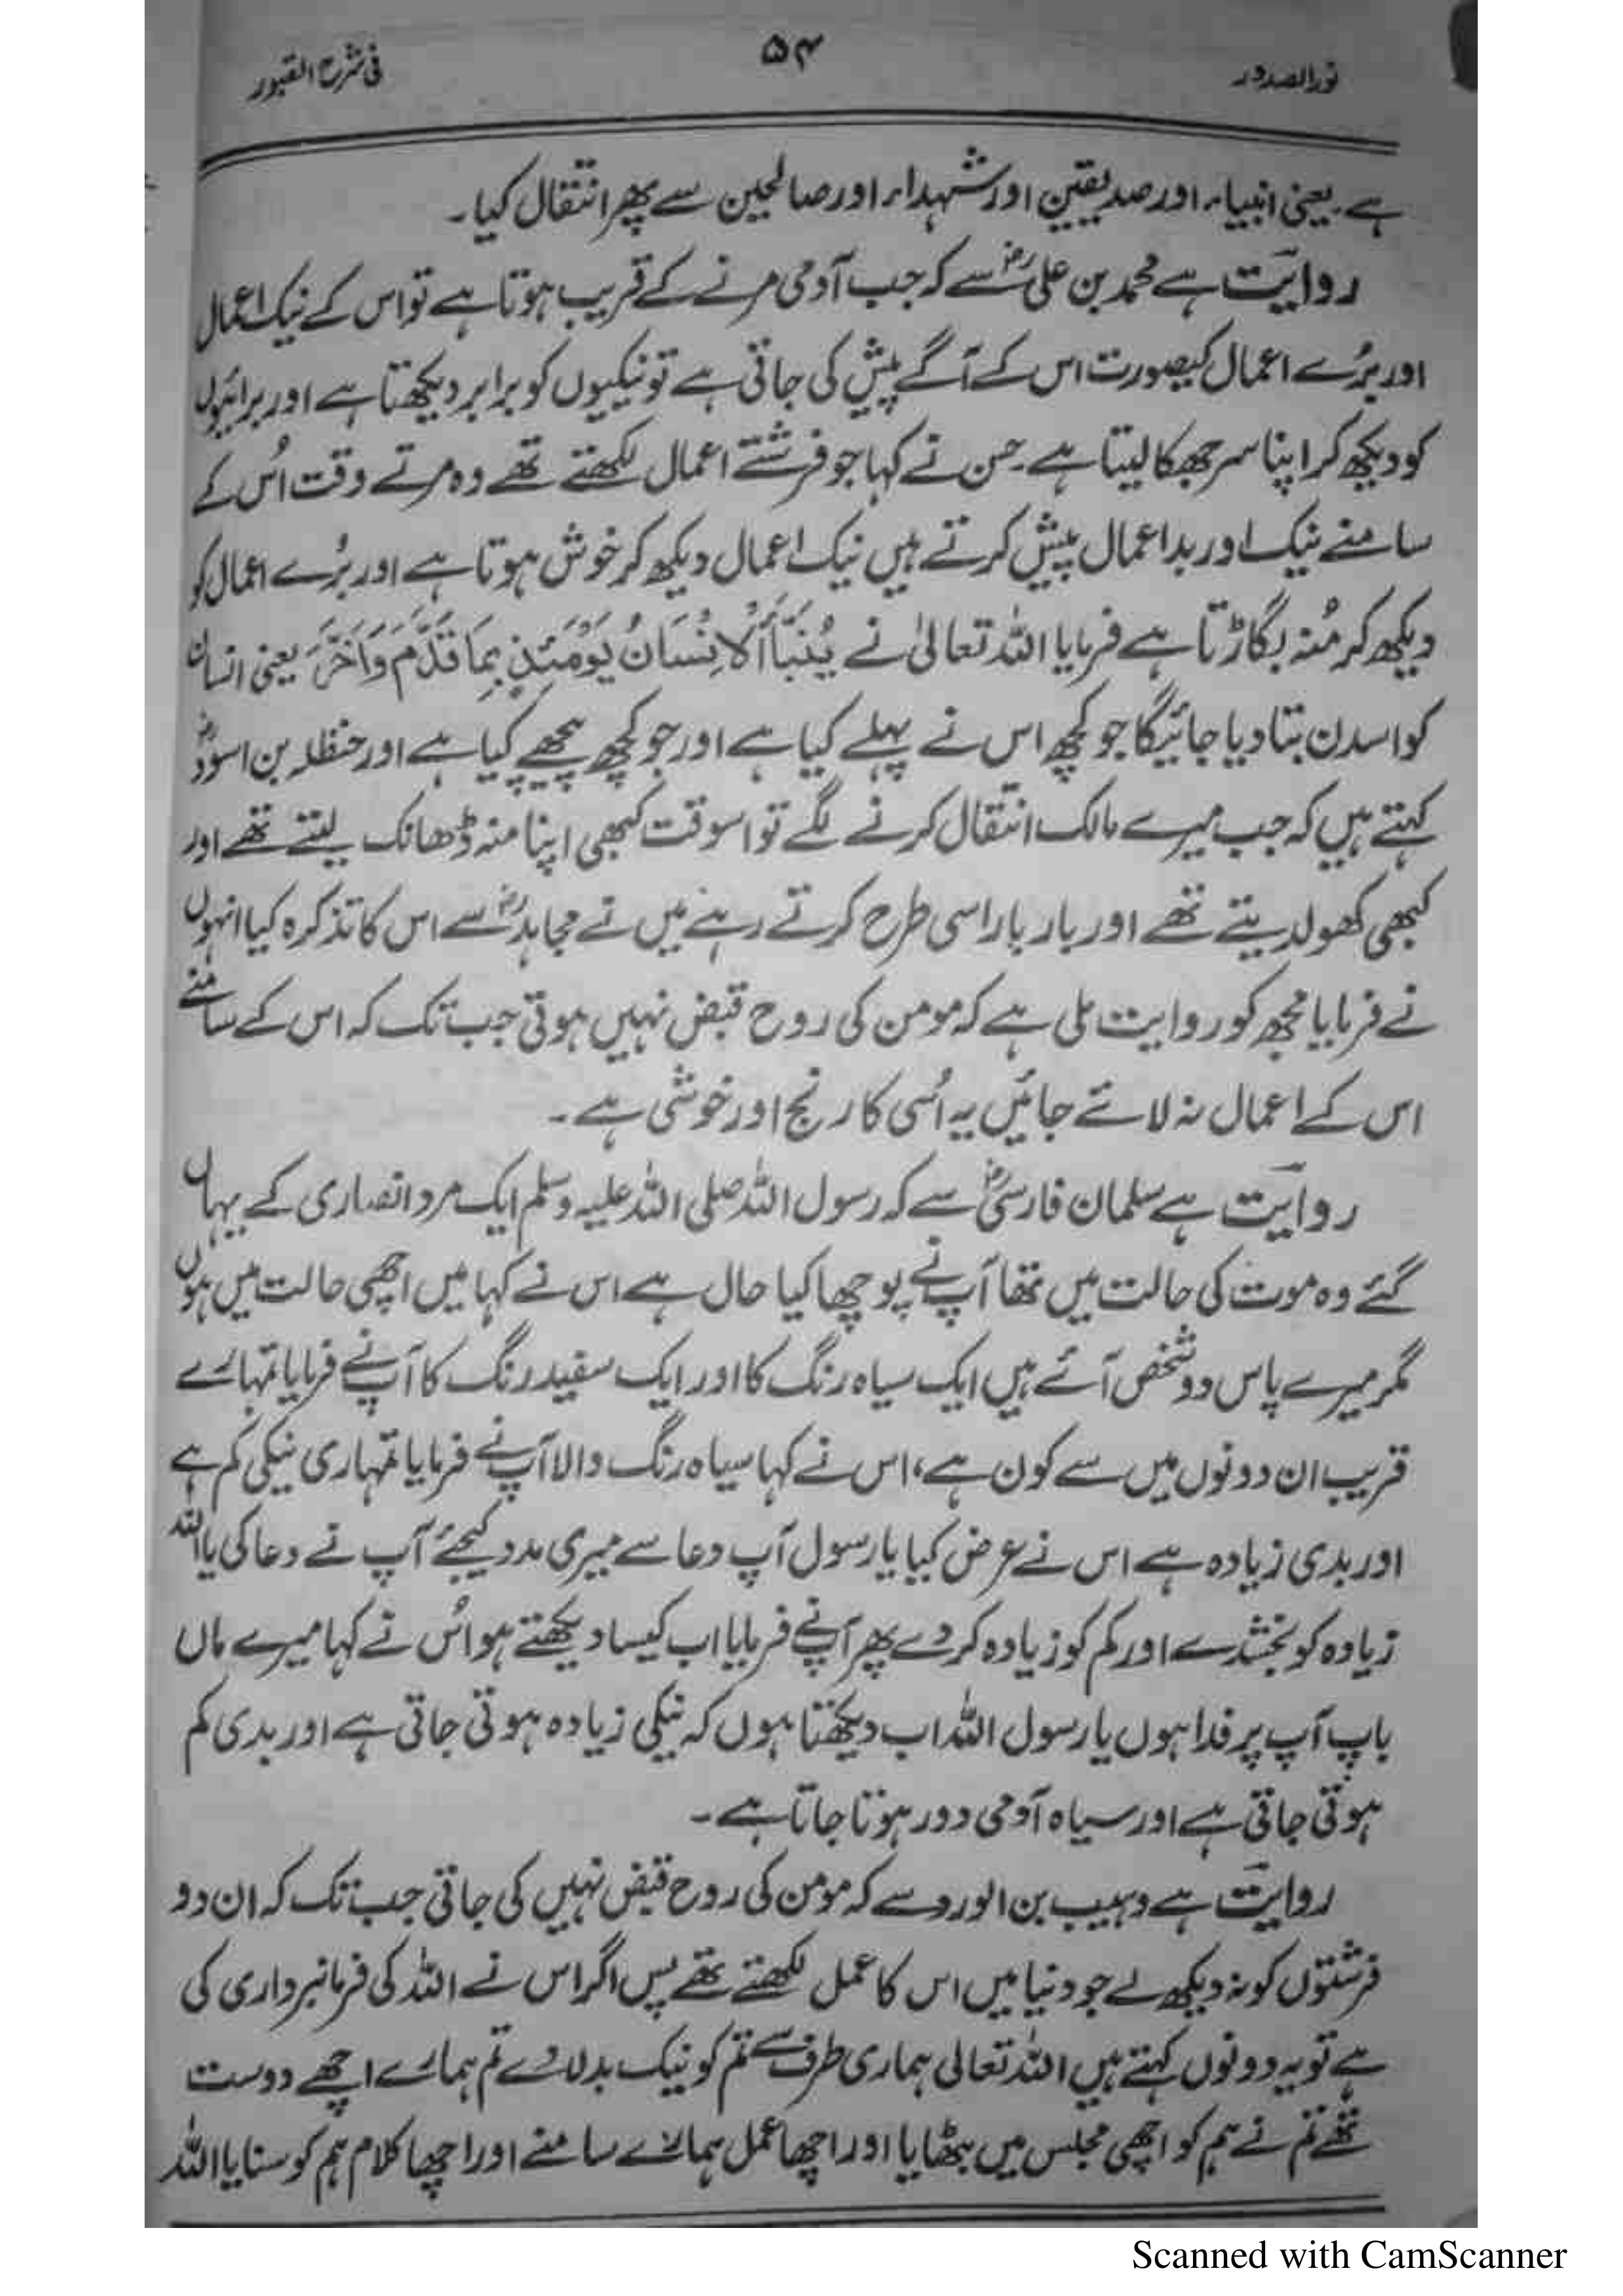 نورالصدور
۵۴
فی شرح القبور
ہے یعنی انبیاء اور صدیقین اور شہداء اور صالحین سے پھر انتقال کیا۔
روایت ہے محمد بن علیؓ سے کہ جب آدمی مرنے کے قریب ہوتا ہے تو اس کے نیک اعمال
اور بُرے اعمال کیصورت اس کے آگے پیش کی جاتی ہے تو نیکیوں کو برابر دیکھتا ہے اور برائیوں
کو دیکھ کر اپنا سر جھکا لیتا ہے۔ حسن نے کہا جو فرشتے اعمال لکھتے تھے وہ مرتے وقت اُس کے
سامنے نیک اور بد اعمال پیش کرتے ہیں نیک اعمال دیکھ کر خوش ہوتا ہے اور بُرے اعمال کو
دیکھ کر مُنہ بگاڑتا ہے فرمایا اللہ تعالیٰ نے یُنَبَّأُ الْاِنْسَانُ یَوْمَئِذٍ بِمَا قَدَّمَ وَاَخَّرَ یعنی انسان
کو اسدن بتا دیا جائیگا جو کچھ اس نے پہلے کیا ہے اور جو کچھ پیچھے کیا ہے اور حنظلہ بن اسودؓ
کہتے ہیں کہ جب میرے مالک انتقال کرنے لگے تو اسوقت کبھی اپنا منہ ڈھانک لیتے تھے اور
کبھی کھولدیتے تھے اور بار بار اسی طرح کرتے رہے میں نے مجاہدؒ سے اس کا تذکرہ کیا انہوں
نے فرمایا مجھ کو روایت ملی ہے کہ مومن کی روح قبض نہیں ہوتی جب تک کہ اس کے سامنے
اس کے اعمال نہ لائے جائیں یہ اُسی کا رنج اور خوشی ہے۔
روایت ہے سلمان فارسیؓ سے کہ رسول اللہ صلی اللہ علیہ وسلم ایک مرد انصاری کے یہاں
گئے وہ موت کی حالت میں تھا آپ نے پوچھا کیا حال ہے اس نے کہا میں اچھی حالت میں ہوں
مگر میرے پاس دو شخص آئے ہیں ایک سیاہ رنگ کا اور ایک سفید رنگ کا آپ نے فرمایا تمہارے
قریب ان دونوں میں سے کون ہے، اس نے کہا سیاہ رنگ والا آپ نے فرمایا تمہاری نیکی کم ہے
اور بدی زیادہ ہے اس نے عرض کیا یا رسول آپ دعا سے میری مدد کیجئے آپ نے دعا کی یا اللہ
زیادہ کو بخشدے اور کم کو زیادہ کر دے پھر آپ نے فرمایا اب کیسا دیکھتے ہو اُس نے کہا میرے ماں
باپ آپ پر فدا ہوں یا رسول اللہ اب دیکھتا ہوں کہ نیکی زیادہ ہوتی جاتی ہے اور بدی کم
ہوتی جاتی ہے اور سیاہ آدمی دور ہوتا جاتا ہے۔
روایت ہے وہیب بن الورد سے کہ مومن کی روح قبض نہیں کی جاتی جب تک کہ ان دو
فرشتوں کو نہ دیکھ لے جو دنیا میں اس کا عمل لکھتے تھے پس اگر اس نے اللہ کی فرمانبرداری کی
ہے تو یہ دونوں کہتے ہیں اللہ تعالی ہماری طرف سے تم کو نیک بدلا دے تم ہمارے اچھے دوست
تھے تم نے ہم کو اچھی مجلس میں بٹھایا اور اچھا عمل ہمارے سامنے اور اچھا کلام ہم کو سنایا اللہ
Scanned with CamScanner